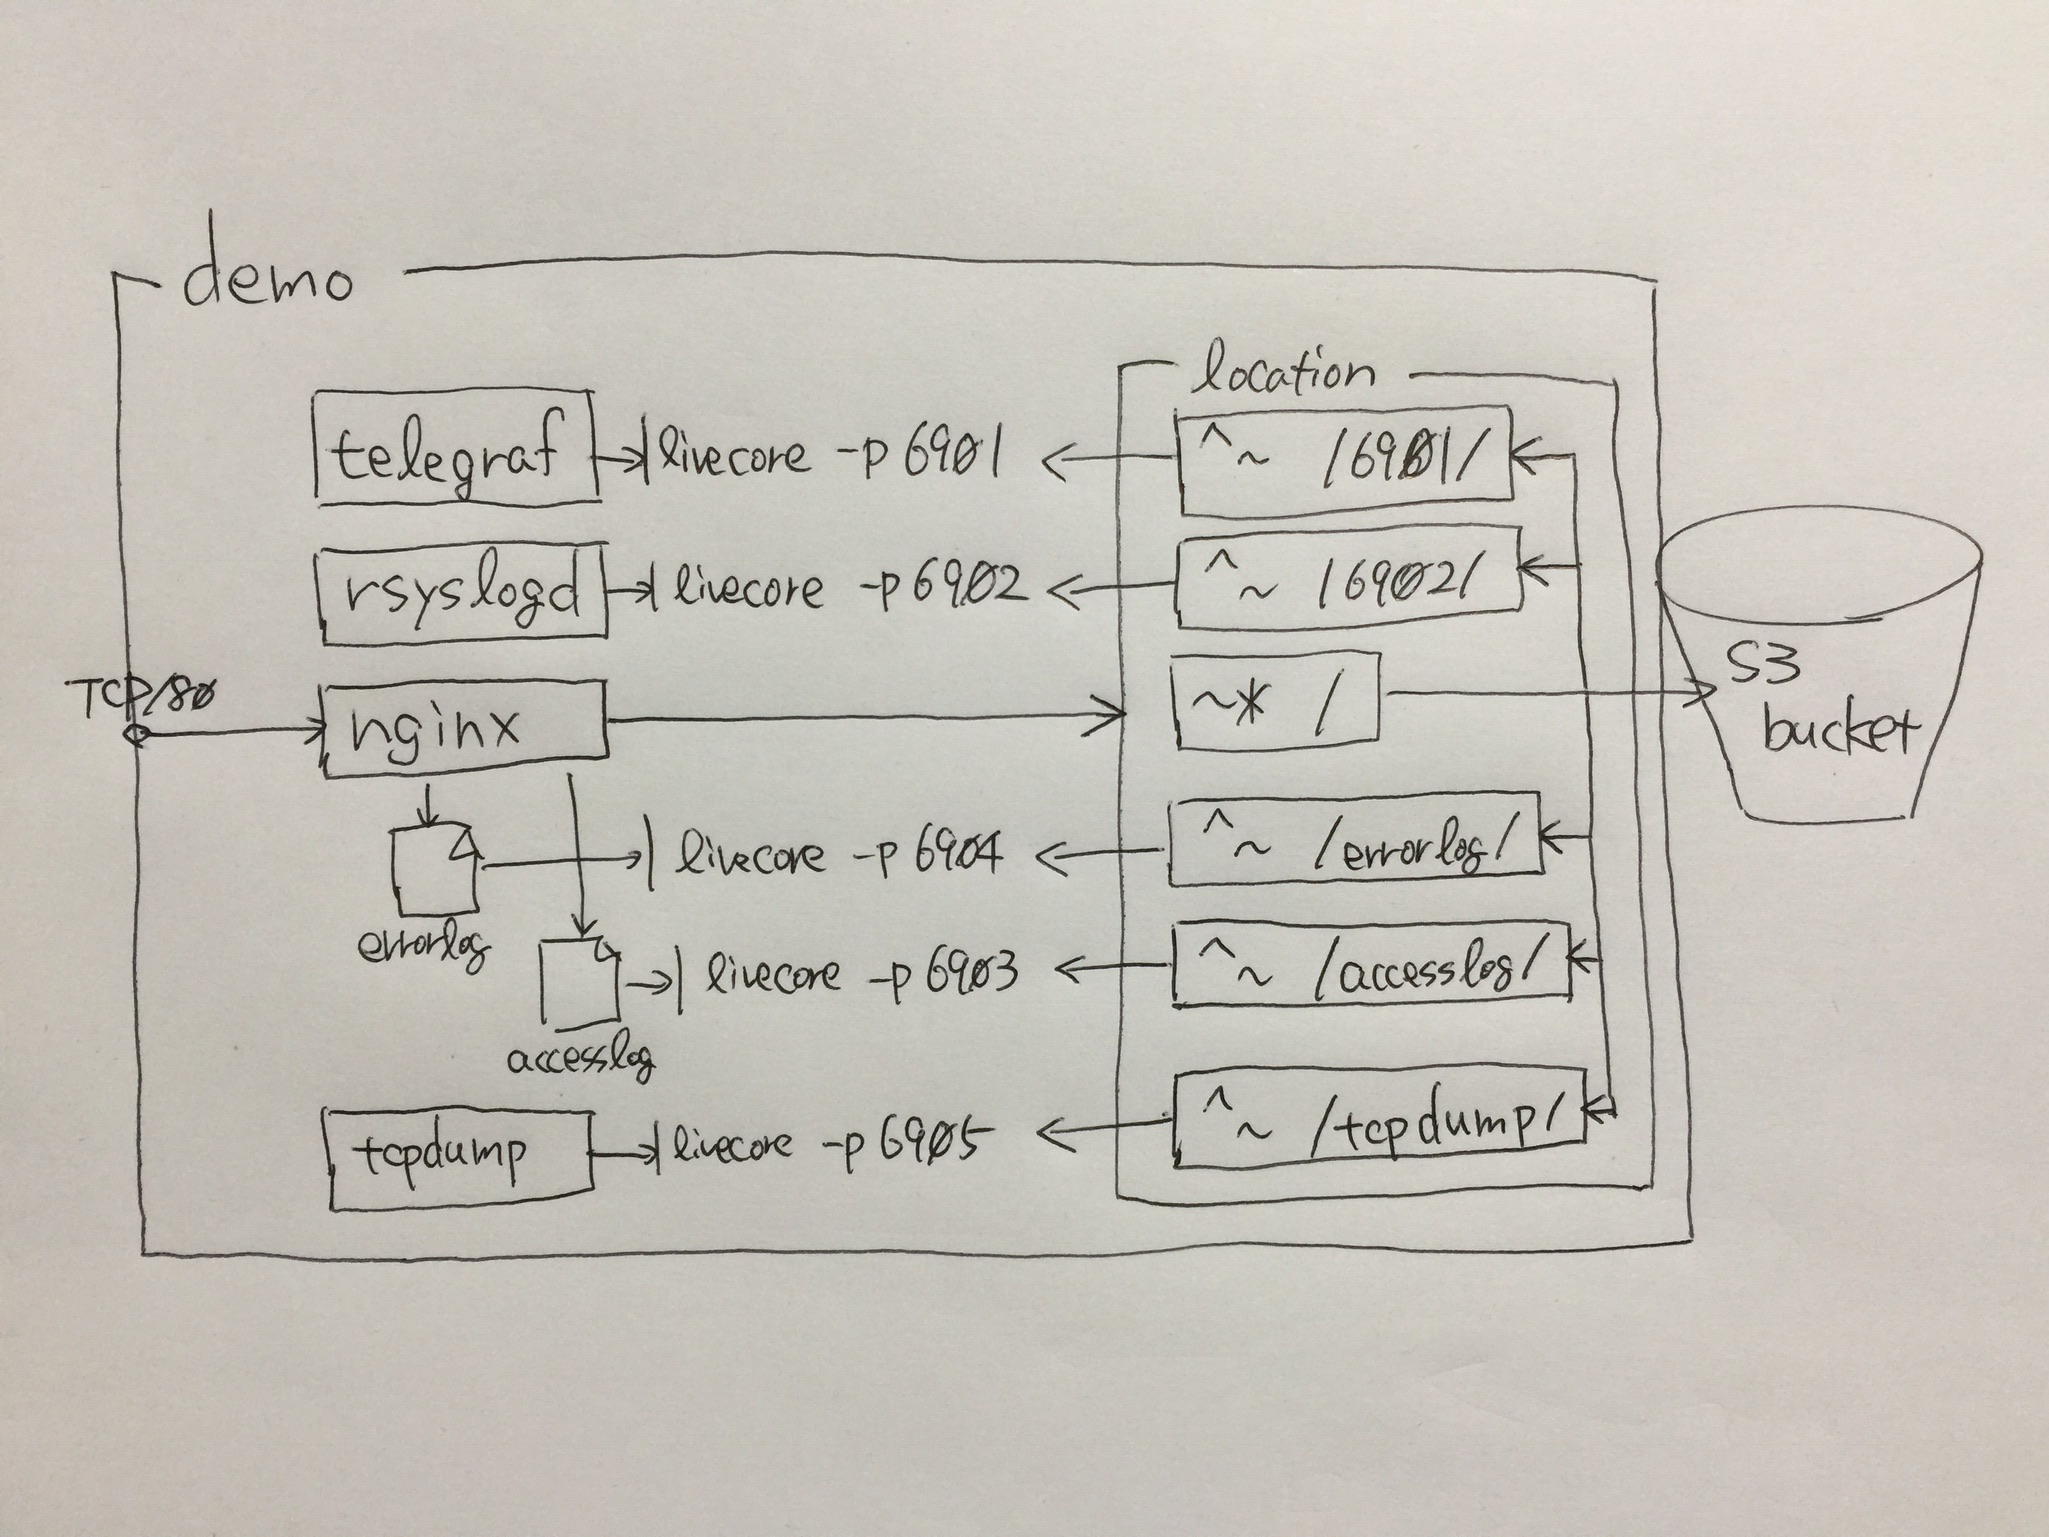 demo
location
telegraf →| livecore -p 6901 ← ^~ /6901/
rsyslogd →| livecore -p 6902 ← ^~ /6902/
TCP/80
nginx → ~* / → S3
bucket
errorlog →| livecore -p 6904 ← ^~ /errorlog/
accesslog →| livecore -p 6903 ← ^~ /accesslog/
tcpdump →| livecore -p 6905 ← ^~ /tcpdump/